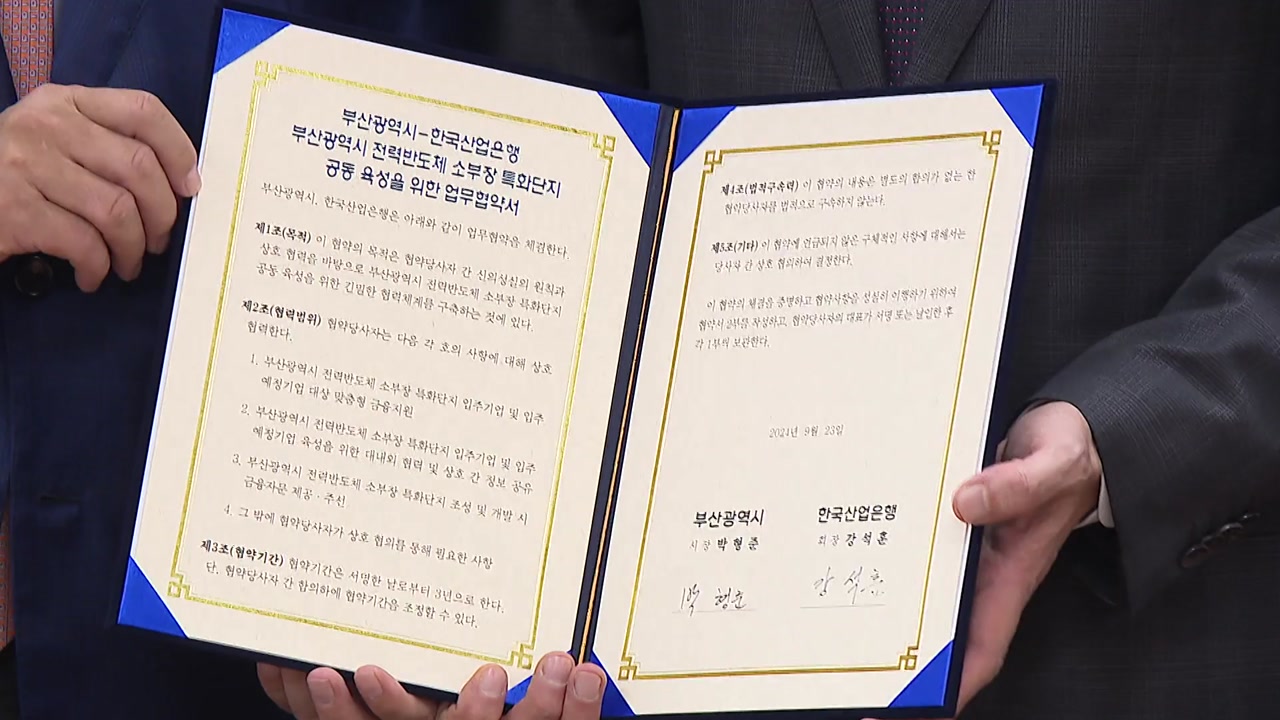 부산광역시-한국산업은행
부산광역시 전력반도체 소부장 특화단지
공동 육성을 위한 업무협약서
부산광역시, 한국산업은행은 아래와 같이 업무협약을 체결한다.
제1조(목적) 이 협약의 목적은 협약당사자 간 신의성실의 원칙과
상호 협력을 바탕으로 부산광역시 전력반도체 소부장 특화단지
공동 육성을 위한 긴밀한 협력체계를 구축하는 것에 있다.
제2조(협력범위) 협약당사자는 다음 각 호의 사항에 대해 상호
협력한다.
1. 부산광역시 전력반도체 소부장 특화단지 입주기업 및 입주
예정기업 대상 맞춤형 금융지원
2. 부산광역시 전력반도체 소부장 특화단지 입주기업 및 입주
예정기업 육성을 위한 대내외 협력 및 상호 간 정보 공유
3. 부산광역시 전력반도체 소부장 특화단지 조성 및 개발 시
금융자문 제공 · 주선
4. 그 밖에 협약당사자가 상호 협의를 통해 필요한 사항
제3조(협약기간) 협약기간은 서명한 날로부터 3년으로 한다.
단, 협약당사자 간 합의하에 협약기간을 조정할 수 있다.
제4조(법적구속력) 이 협약의 내용은 별도의 합의가 없는 한
협약당사자를 법적으로 구속하지 않는다.
제5조(기타) 이 협약에 언급되지 않은 구체적인 사항에 대해서는
당사자 간 상호 협의하여 결정한다.
이 협약의 체결을 증명하고 협약사항을 성실히 이행하기 위하여
협약서 2부를 작성하고, 협약당사자의 대표가 서명 또는 날인한 후
각 1부씩 보관한다.
2024년 9월 23일
부산광역시 한국산업은행
시장 박형준 회장 강석훈
박형준 강석훈